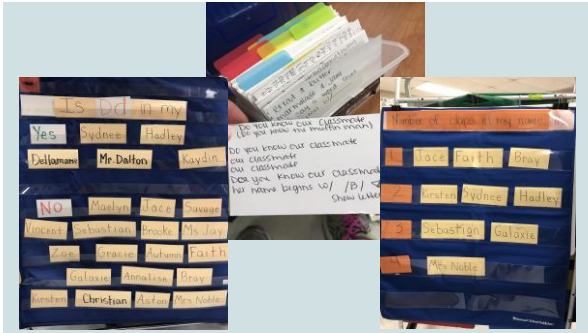 Is Dd in my
Yes Sydnee Hadley
Dellamame Mr. Dalton Kaydin
NO Maelyn Jace Savage
Vincent Sebastian Brooke Ms Jay
Zoe Gracie Autumn Faith
Galaxie Annalise Bray
Kiersten Christian Aston Mrs Noble
Do you know our classmate
(Do you know the muffin man)
Do you know our classmate
our classmate
our classmate
Do you know our classmate
her name begins w/ /B/
Show letter
Number of claps in my name
1 Jace Faith Bray
2 Kirsten Sydnee Hadley
3 Sebastian Galaxie
4 Mrs Noble